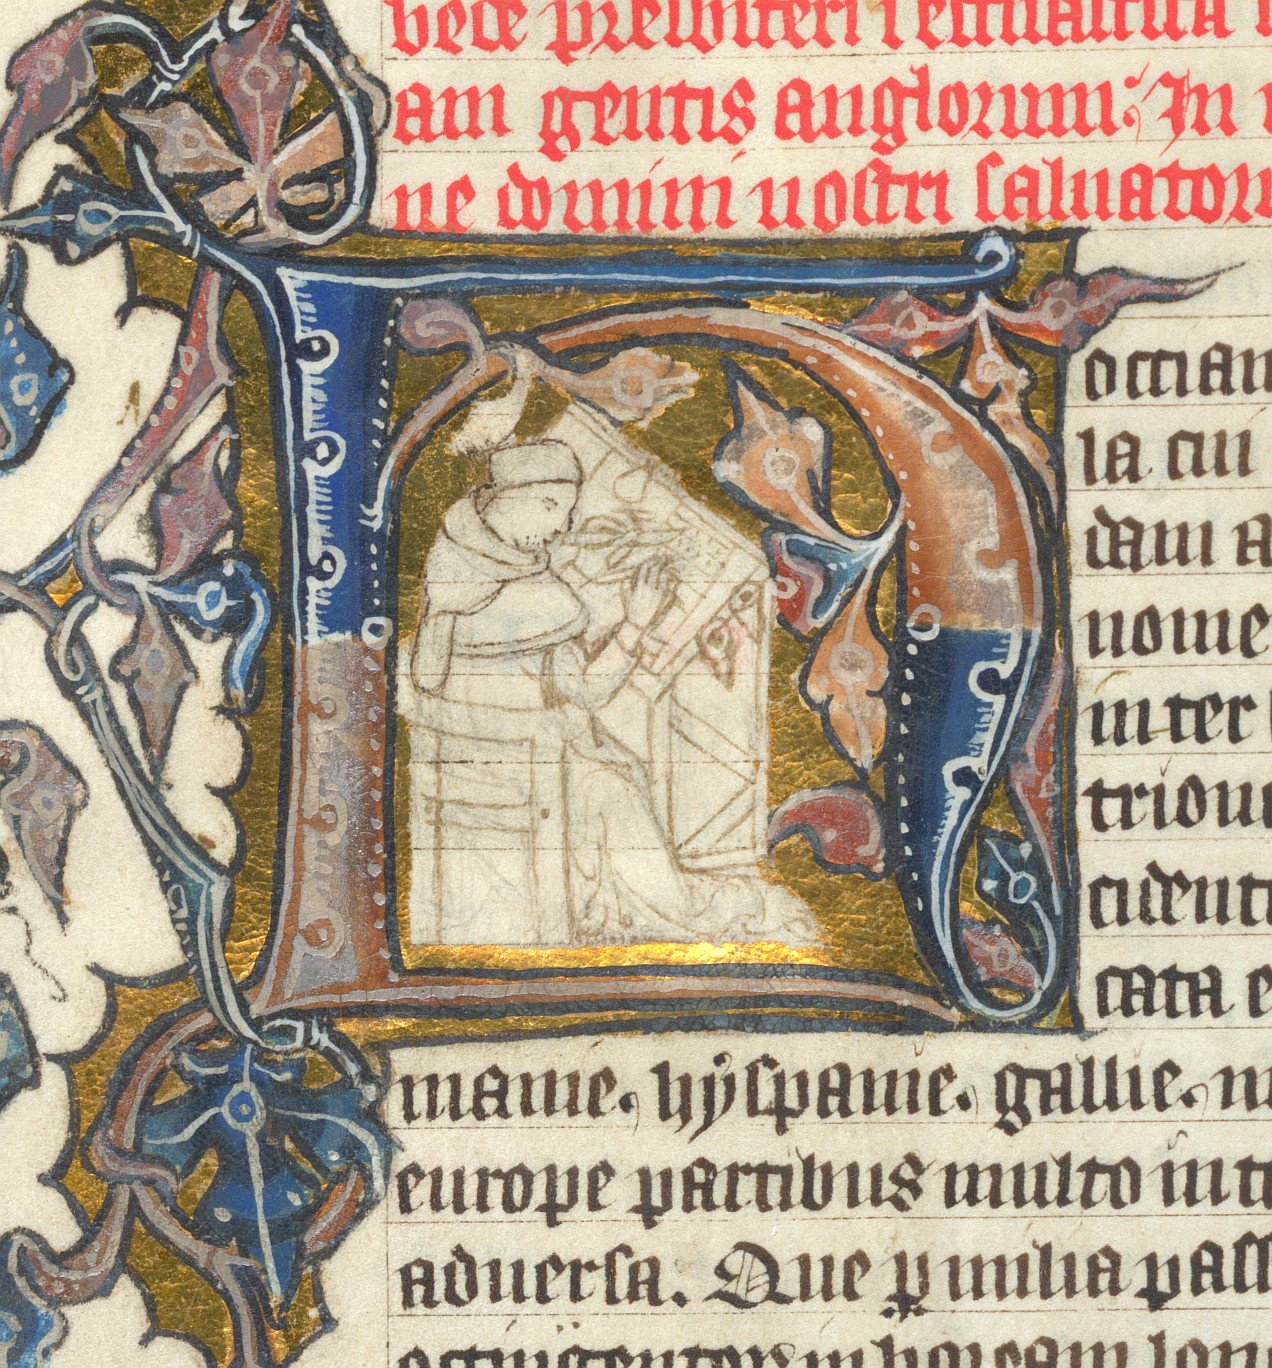 bede presbiteri
am gentis anglorum: In
ne domini nostri saluatori
occian
la cui
dam a
nome
inter
trione
cidenti
cata e
manie. hyspanie. gallie. m
europe partibus multo inte
aduersa. Que p milia pass
octingentorum in boream lon